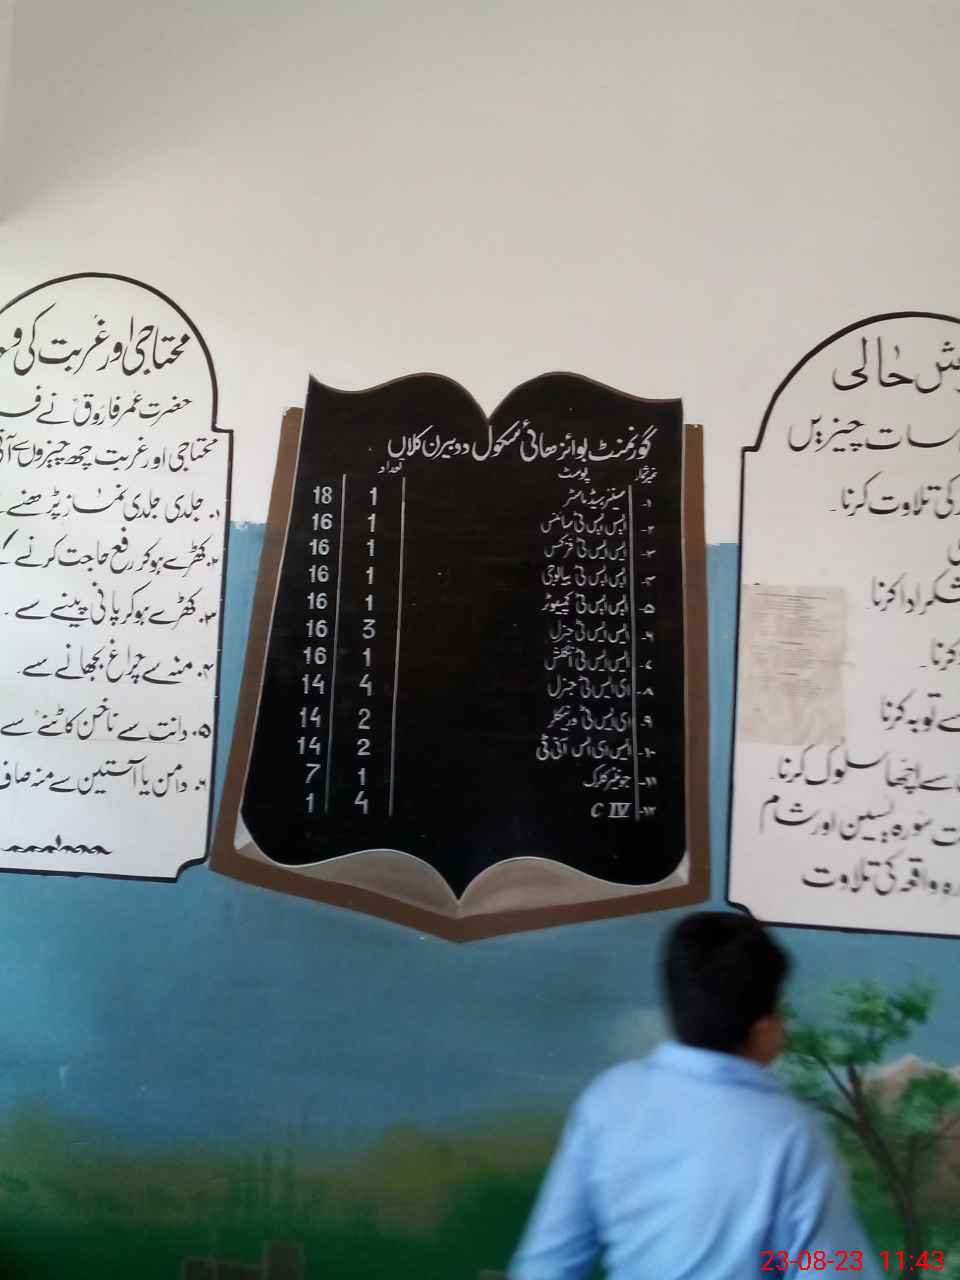 محتاجی اور غربت کی
حضرت عمر فاروقؓ نے
محتاجی اور غربت چھ چیزوں سے
۱۔ جلدی جلدی نماز پڑھنے
۲۔ کھڑے ہو کر رفع حاجت کرنے
۳۔ کھڑے ہو کر پانی پینے سے۔
۴۔ منہ سے چراغ بجھانے سے۔
۵۔ دانت سے ناخن کاٹنے سے
۶۔ دامن یا آستین سے منہ صاف
گورنمنٹ بوائز ھائی سکول دوبیرن کلاں
نمبرشمار پوسٹ تعداد
۱۔ سینئر ہیڈ ماسٹر 1 18
۲۔ ایس ایس ٹی سائنس 1 16
۳۔ ایس ایس ٹی فزکس 1 16
۴۔ ایس ایس ٹی بیالوجی 1 16
۵۔ ایس ایس ٹی کمپیوٹر 1 16
۶۔ ایس ایس ٹی جنرل 3 16
۷۔ ایس ایس ٹی انگلش 1 16
۸۔ ای ایس ٹی جنرل 4 14
۹۔ ای ایس ٹی ورنیکلر 2 14
۱۰۔ ایس ای ایس آئی ٹی 2 14
۱۱۔ جونیئر کلرک 1 7
۱۲۔ C IV 4 1
حالی
سات چیزیں
کی تلاوت کرنا۔
شکر ادا کرنا۔
کرنا۔
سے توبہ کرنا
سے اچھا سلوک کرنا۔
سورہ یٰسین اور شام
واقعہ کی تلاوت
23-08-23 11:43